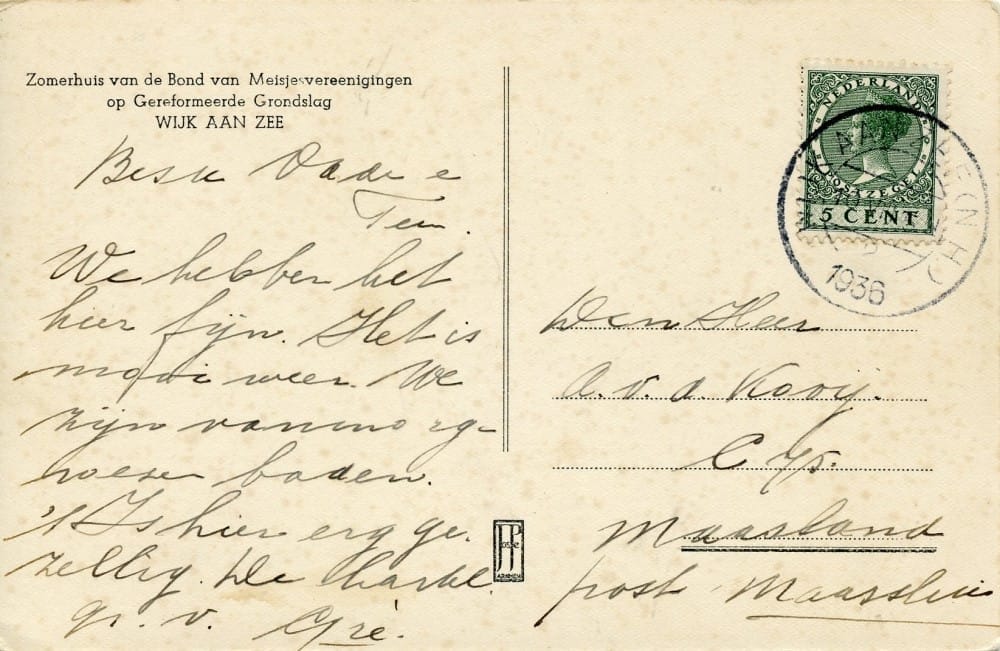 Zomerhuis van de Bond van Meisjesvereenigingen
op Gereformeerde Grondslag
WIJK AAN ZEE
Beste Vader
We hebben het
hier fijn. Het is
mooi weer. We
zijn vanmorge
wesen baden.
't Is hier erg ge-
zellig. De hartel.
gr. v.
NEDERLAND
POSTZEGEL
5 CENT
1936
Den Heer
A. v. d. Kooij.
Maasland
post Maassluis